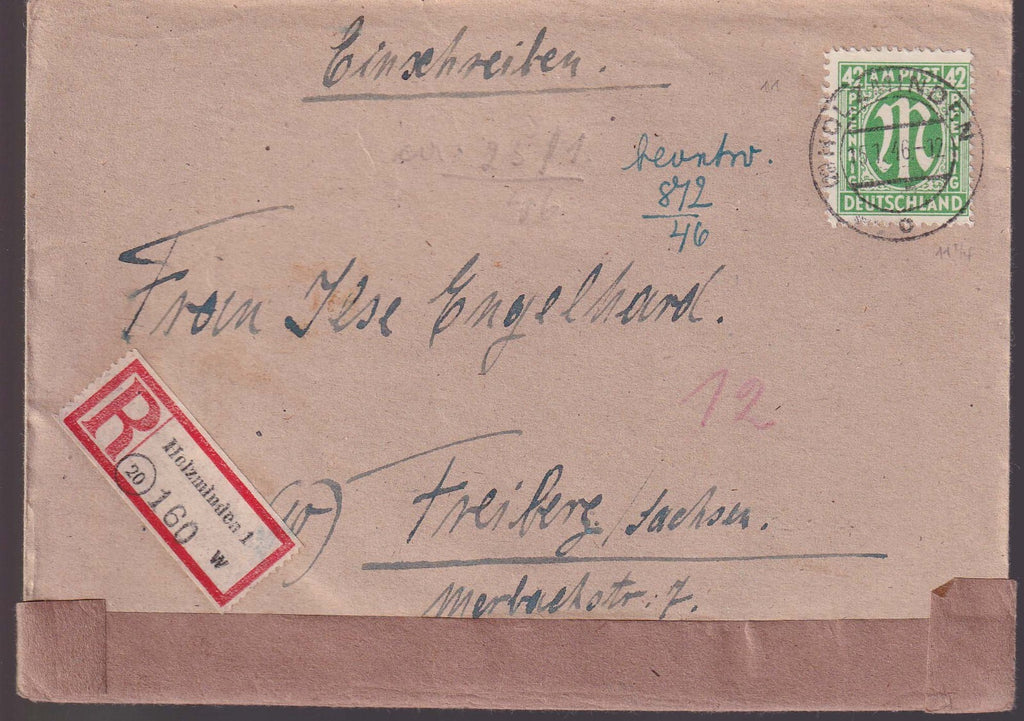 Einschreiben.
11
42 AM POST 42
PFENNIG PFENNIG
DEUTSCHLAND
HOLZMINDEN
o
25/1
46
beantw.
8/2
46
11 1/4
Frau Ilse Engelhard.
12
R
Holzminden 1
(20)
160
w
(10) Freiberg/Sachsen.
Merbachstr. 7.